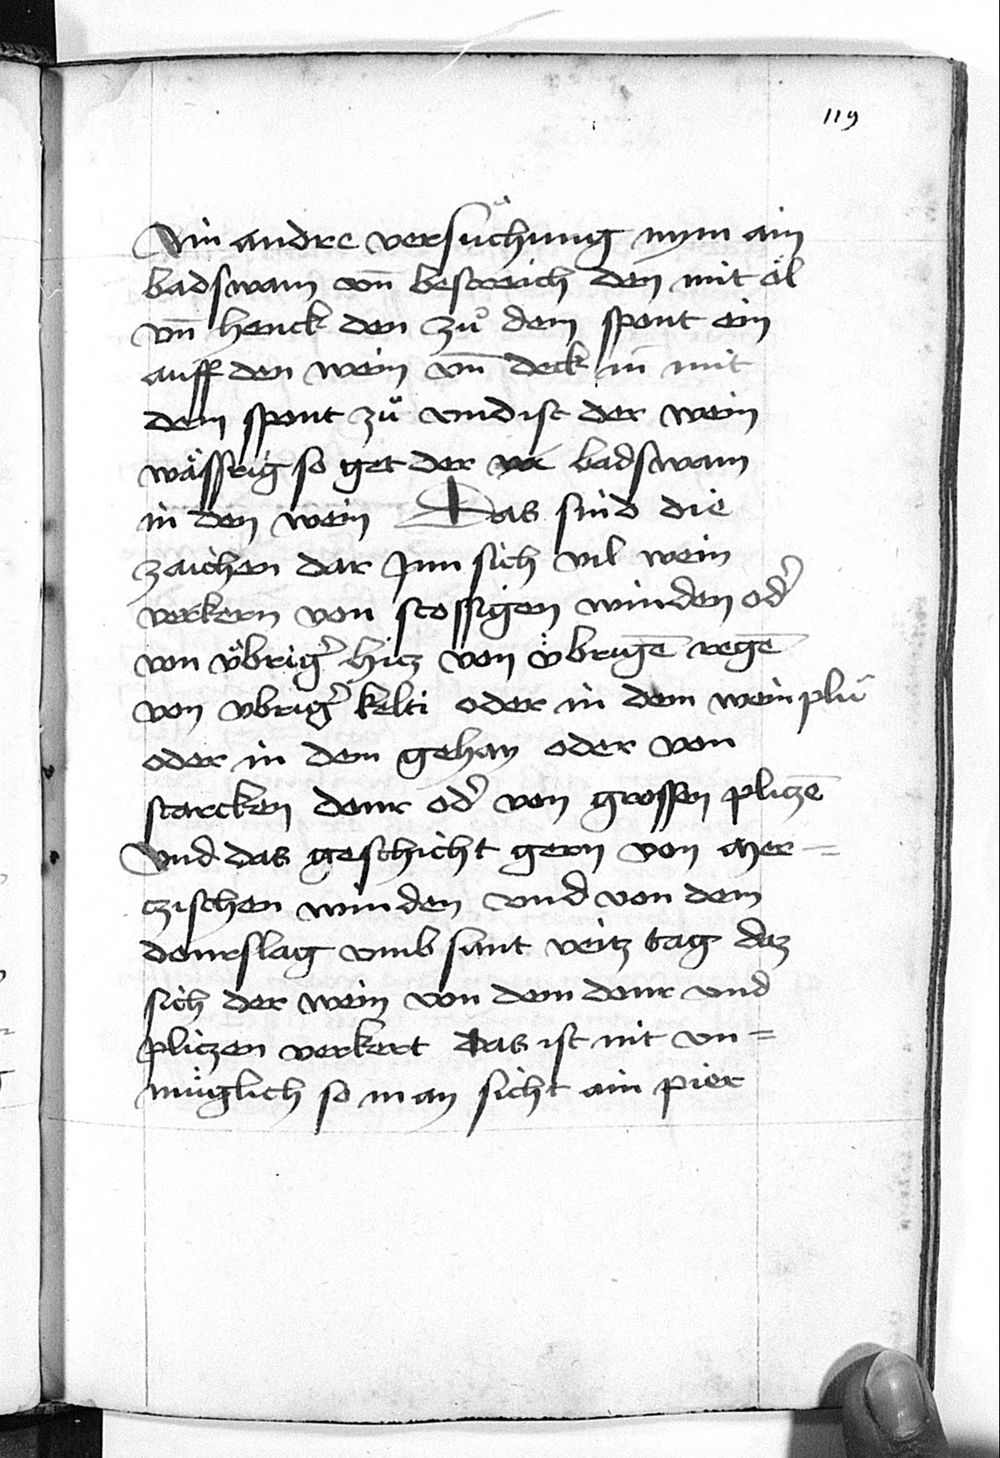 119
Ain andre versůchung nym ain
badswam vn̄ bestreich den mit öl
vn̄ henck den zů dem spont ein
auff den wein vn̄ deck in mit
dem spont zů vnd ist der wein
wässrig so get der badswam
in den wein Das sind die
zaichen dar Jnn sich vil wein
verkern von stossigen winden od᷑
von v̈brig᷑ hicz von v̈brigē regē
von vbrig᷑ kelti oder in dem wein plů
oder in dem gehay oder von
starcken donr od᷑ von grossen pliczē
Vnd das geschicht gern von mer=
czischen winden vnd von dem
donrslag vmb sant veitz tag daz
sich der wein von dem donr vnd
pliczen verkert das ist nit vn=
müglich so man sicht ain pier